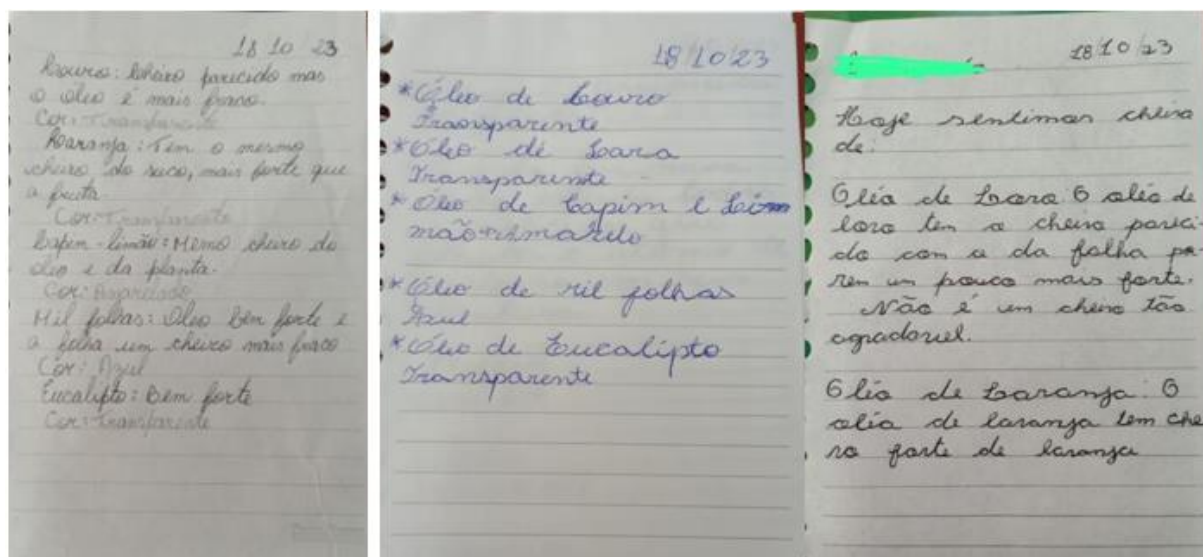 18 10 23
Louro: Cheiro parecido mas
o óleo é mais fraco.
Cor: Transparente
Laranja: Tem o mesmo
cheiro do suco, mais forte que
a fruta.
Cor: Transparente
Capim-limão: Memo cheiro do
óleo e da planta.
Cor: Amarelado
Mil folhas: Óleo bem forte e
a folha um cheiro mais fraco
Cor: Azul
Eucalipto: Bem forte
Cor: Transparente
18/10/23
*Óleo de Louro
Transparente
*Óleo de Lara
Transparente
*Óleo de Capim e Lim
mão Amarelo
*Óleo de mil folhas
Azul
*Óleo de Eucalípto
Transparente
18/10/23
Hoje sentimos cheiro
de:
Oléo de Loro: O oléo de
loro tem o cheiro pareci-
do com o da folha po-
rem um pouco mais forte.
Não é um cheiro tão
agradavel.
Oléo de Laranja: O
oléo de laranja tem che
ro forte de laranja